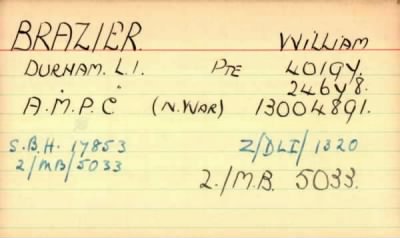 BRAZIER. WILLIAM
DURHAM. L.I. PTE 40194.
24648.
A.M.P.C (N.WAR) 13004891.
S.B.H. 17853 Z/DLI/1320
2/MB/5033
2./M.B. 5033.